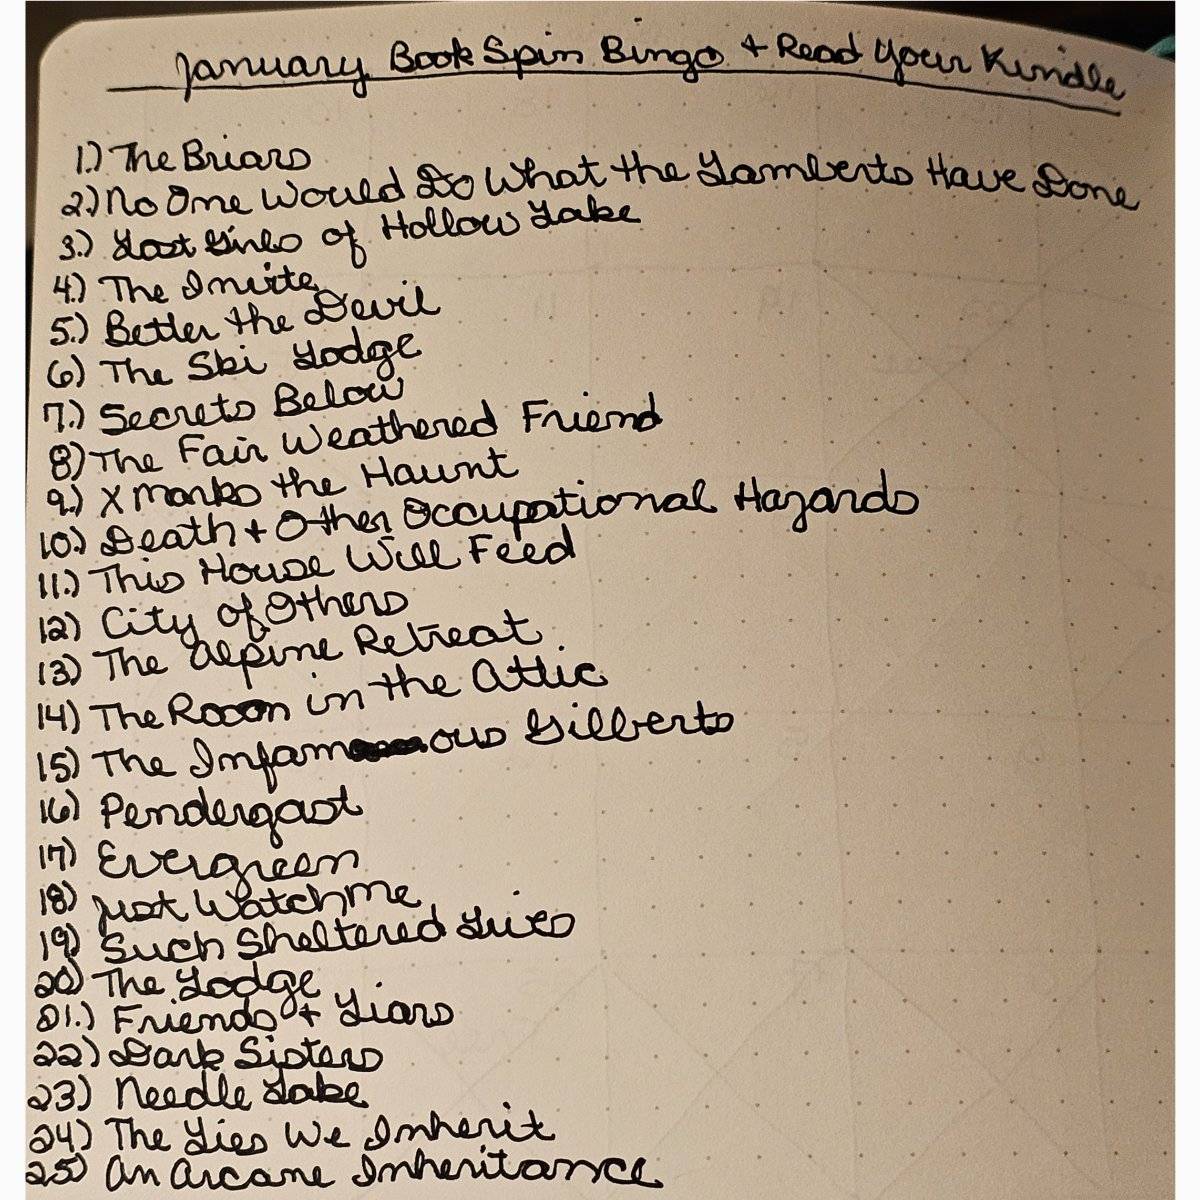 January Book Spin Bingo + Read Your Kindle
1.) The Briars
2.) No One Would Do What the Lamberts Have Done
3.) Last Girls of Hollow Lake
4.) The Invite
5.) Better the Devil
6) The Ski Lodge
7.) Secrets Below
8) The Fair Weathered Friend
9.) X Marks the Haunt
10.) Death + Other Occupational Hazards
11.) This House Will Feed
12) City of Others
13) The Alpine Retreat
14) The Room in the Attic
15) The Infamous Gilberts
16) Pendergast
17) Evergreen
18) Just Watch Me
19) Such Sheltered Lives
20) The Lodge
21.) Friends + Liars
22) Dark Sisters
23) Needle Lake
24) The Lies We Inherit
25) An Arcane Inheritance